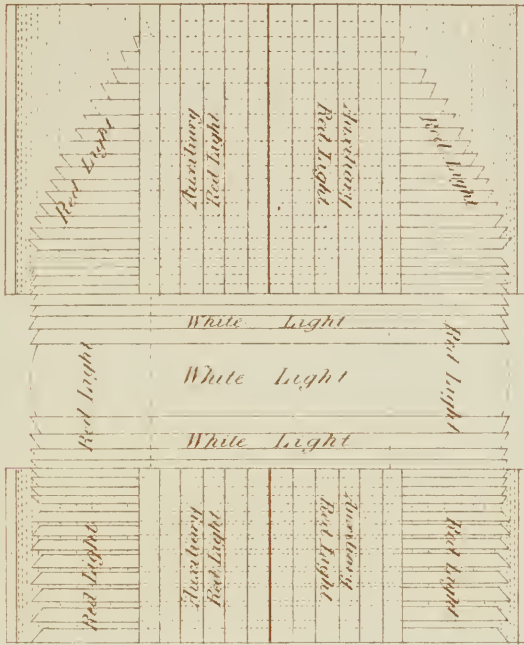 Red Light
Auxiliary
Red Light
Auxiliary
Red Light
Red Light
White Light
Red Light
White Light
Red Light
White Light
Red Light
Auxiliary
Red Light
Auxiliary
Red Light
Red Light